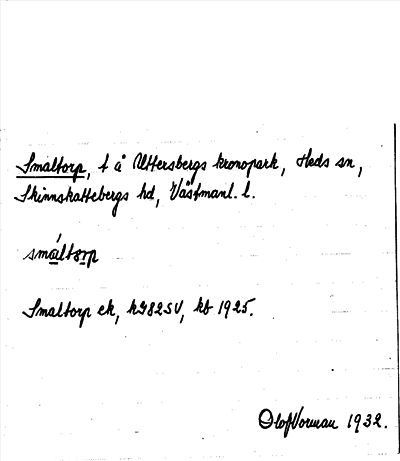 Smaltorp, t å Uttersbergs kronopark, Heds sn,
Skinnskattebergs hd, Västmanl. l.
småltorp
Smaltorp ek, k982SV, kb 1925.
Olof Vorman 1932.